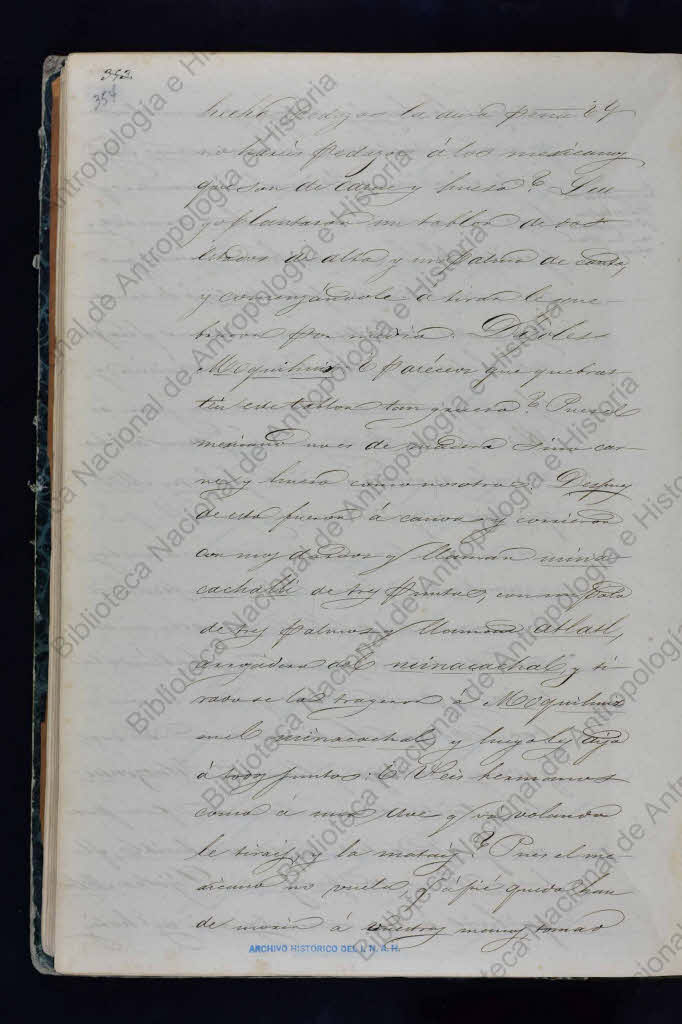 353
354
hecho pedazos la dura peña ¿Y
no hareis pedazos á los mexicanos
que son de carne y hueso? Lue
go plantaron un tablon de dos
estados de alto y un palmo de canto,
y comenzándole a tirar le que-
braron por medio. Díjoles
Moquihuix ¿ paréceos que quebras-
teis este tablon tan grueso? Pues el
mexicano no es de madera sino car-
ne y hueso como nosotros. Despues
de esto fueron á canoas y corrieron
con muy dardos q llaman mina-
cachalli de tres puntas, con un palo
de tres palmos q llaman atlatl,
arrojadera del minacachal y ti-
rado se las trageron á Moquihuix
en el minacachal y luego les dijo
á todos juntos: ¿ Veis hermanos
como á una ave q va volando
le tirais y la matais? Pues el me-
xicano no vuela q á pié quedo han
de morir á vuestras manos, tomad
ARCHIVO HISTORICO DEL I. N. A. H.
Biblioteca Nacional de Antropología e Historia